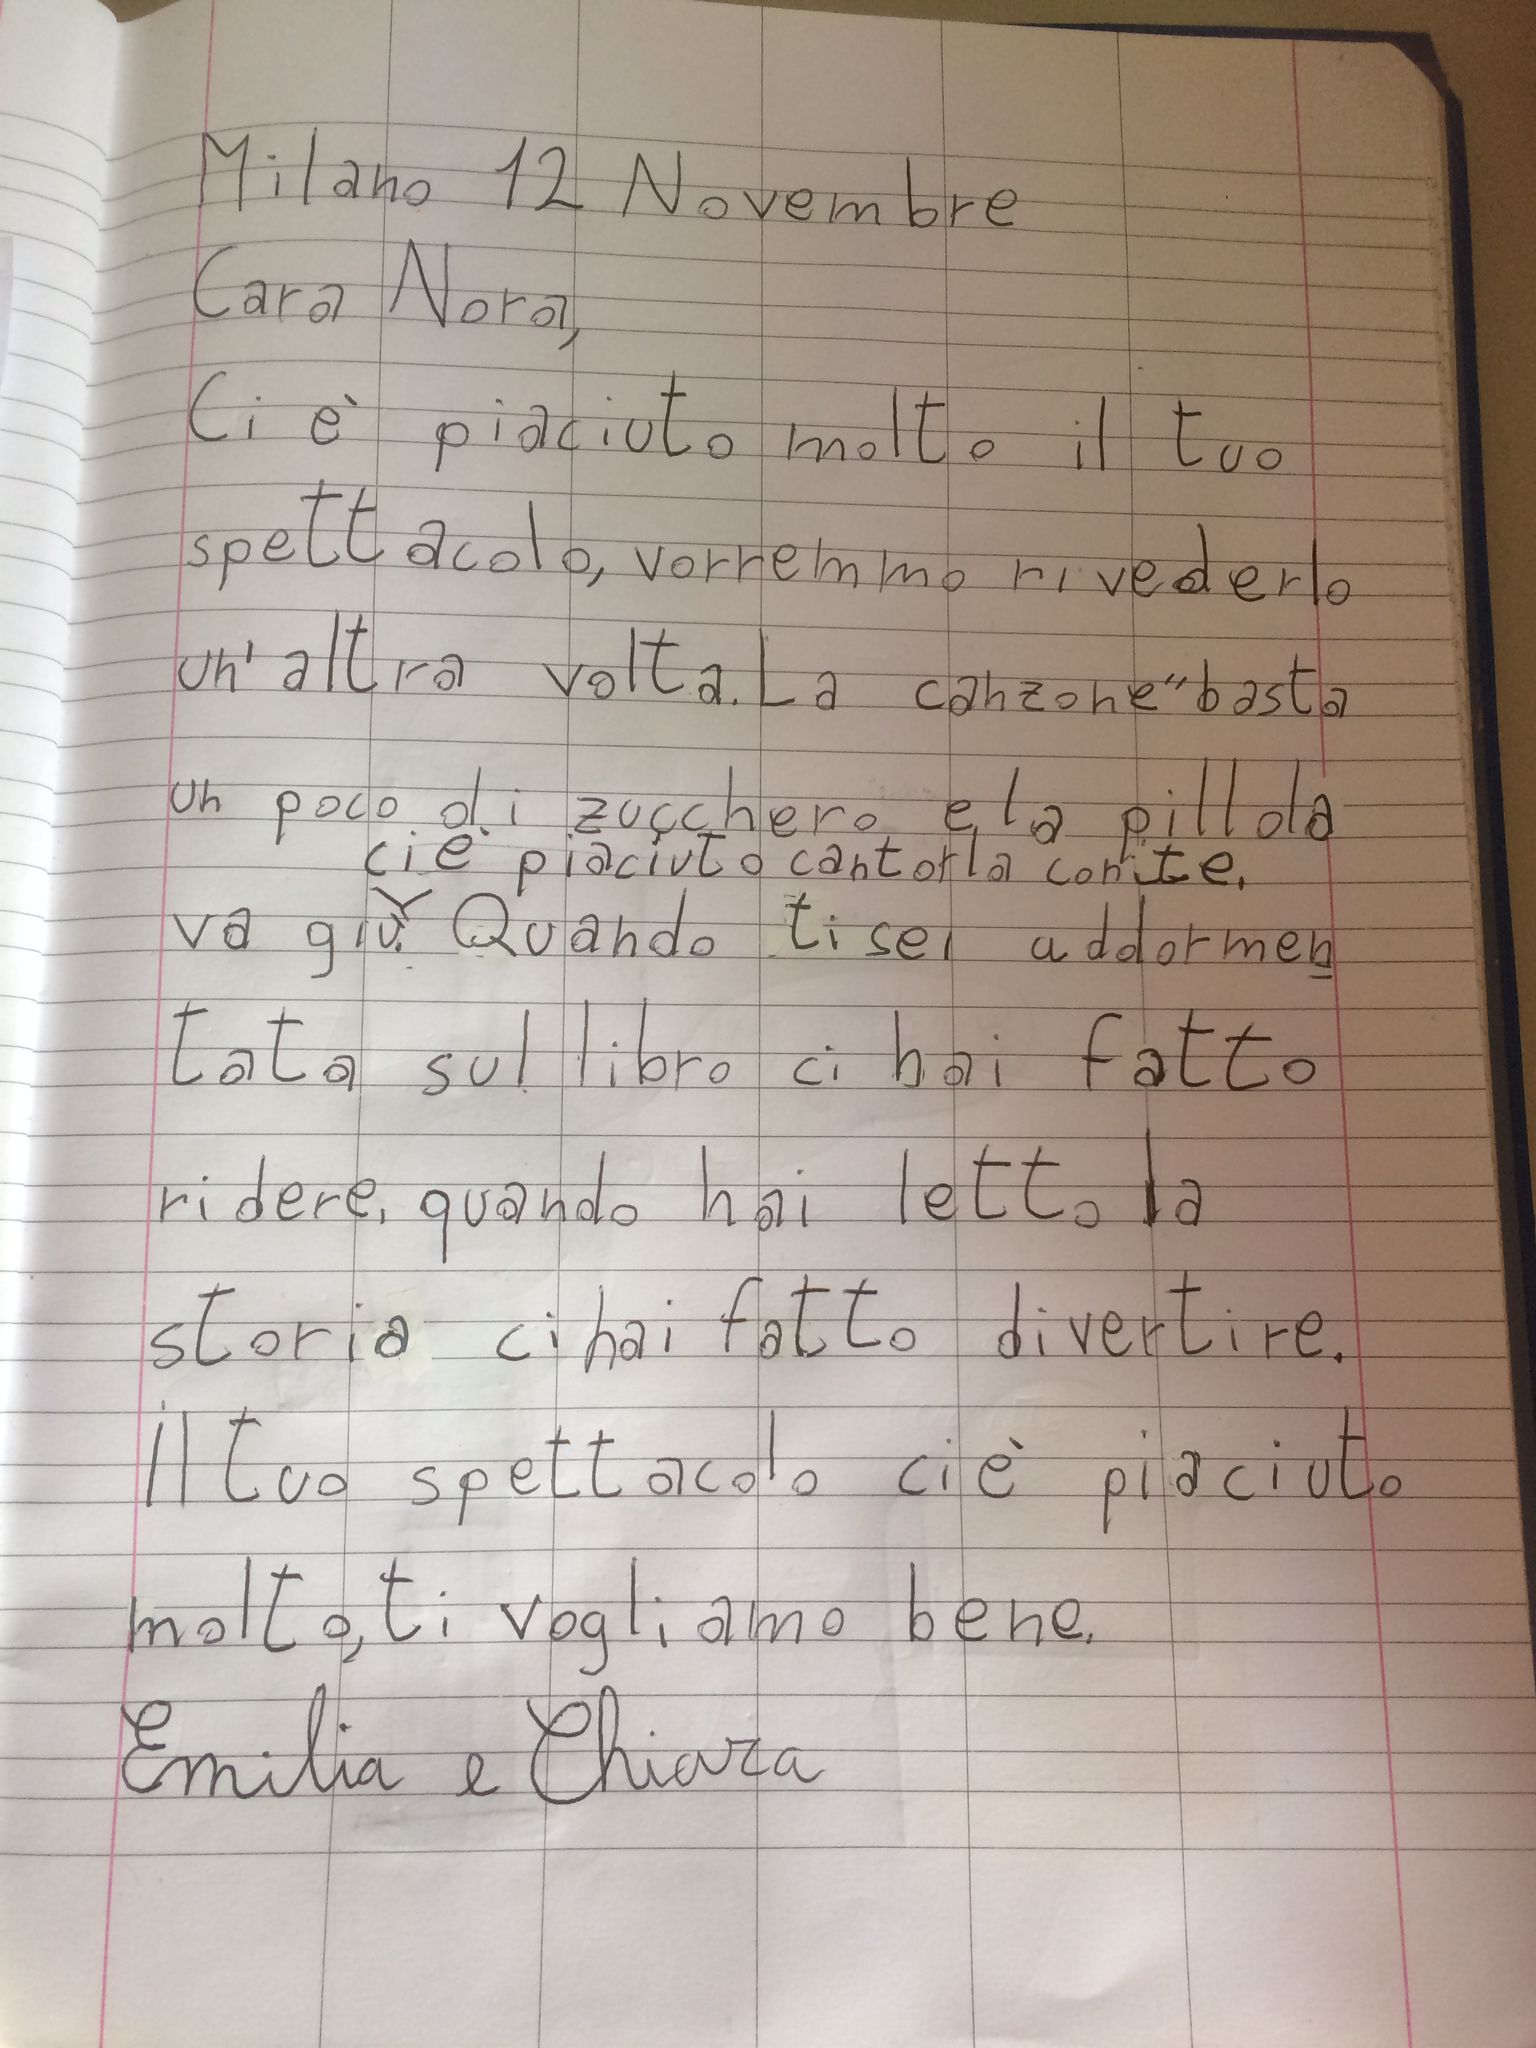 Milano 12 Novembre
Cara Nora,
Ci è piaciuto molto il tuo
spettacolo, vorremmo rivederlo
un'altra volta. La canzone "basta
un poco di zucchero e la pillola
ci è piaciuto cantarla con te.
va giù". Quando ti sei addormen
tata sul libro ci hai fatto
ridere, quando hai letto la
storia ci hai fatto divertire.
il tuo spettacolo ci è piaciuto
molto, ti vogliamo bene.
Emilia e Chiara